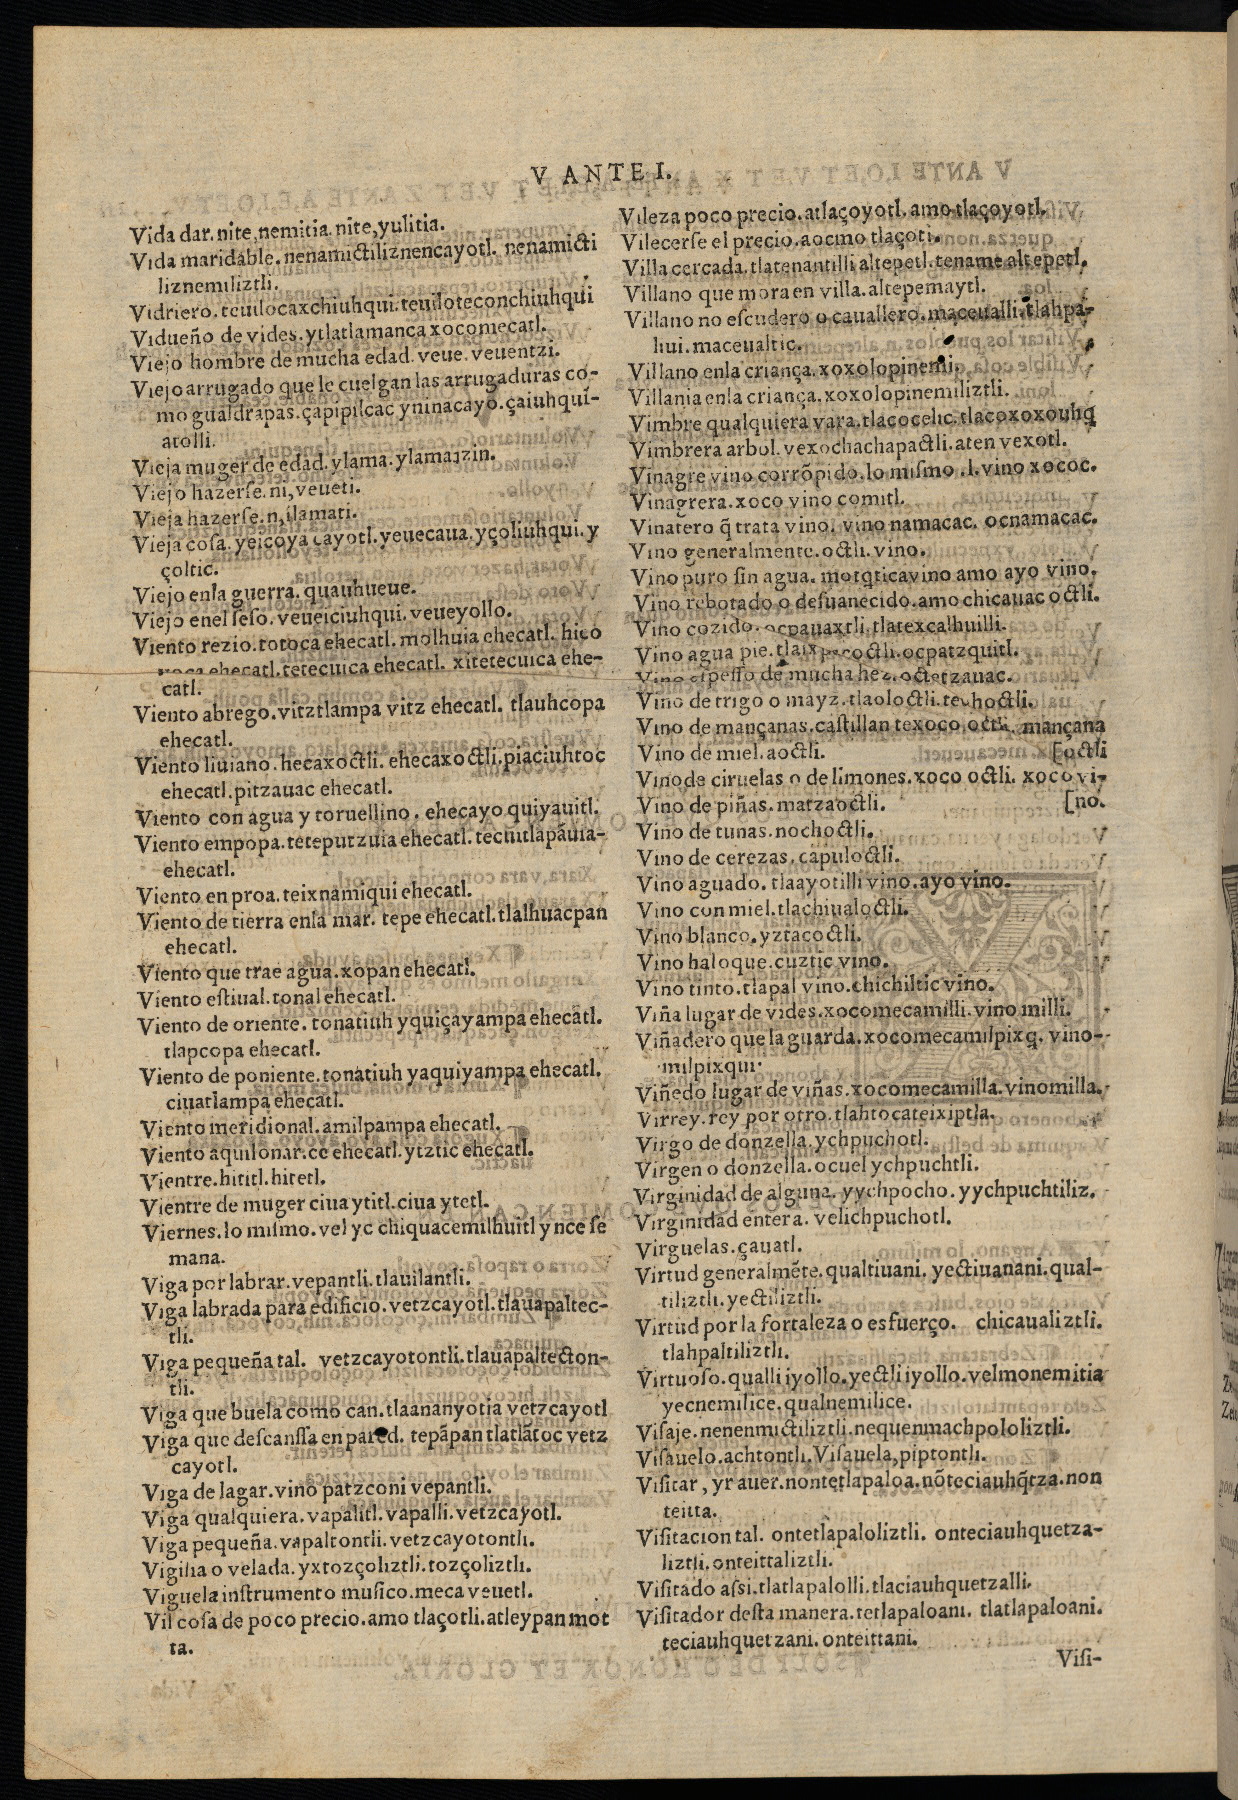 V ANTE I.
Vida dar. nite,nemitia. nite,yulitia.
Vida maridable. nenamictiliznencayotl. nenamicti
liznemiliztli.
Vidriero. teuilocaxchiuhqui. teuiloteconchiuhqui
Vidueño de vides. ytlatlamanca xocomecatl.
Viejo hombre de mucha edad. veue. veuentzi.
Viejo arrugado que le cuelgan las arrugaduras co-
mo gualdrapas. çapipilcac yninacayo. çaiuhqui-
atolli.
Vieja muger de edad. ylama. ylamatzin.
Viejo hazerse. ni,veueti.
Vieja hazerse. n,ilamati.
Vieja cosa. yeicoya cayotl. yeuecaua. yçoliuhqui. y
çoltic.
Viejo enla guerra. quauhueue.
Viejo enel seso. veueiciuhqui. veueyollo.
Viento rezio. totoca ehecatl. molhuia ehecatl. hico
yoca ehecatl. tetecuica ehecatl. xitetecuica ehe-
catl.
Viento abrego. vitztlampa vitz ehecatl. tlauhcopa
ehecatl.
Viento liuiano. hecaxoctli. ehecaxoctli. piaciuhtoc
ehecatl. pitzauac ehecatl.
Viento con agua y toruellino. ehecayo quiyauitl.
Viento empopa. teteputzuia ehecatl. tecuitlapãuia-
ehecatl.
Viento en proa. teixnamiqui ehecatl.
Viento de tierra enla mar. tepe ehecatl. tlalhuacpan
ehecatl.
Viento que trae agua. xopan ehecatl.
Viento estiual. tonal ehecatl.
Viento de oriente. tonatiuh yquiçayampa ehecatl.
tlapcopa ehecatl.
Viento de poniente. tonatiuh yaquiyampa ehecatl.
ciuatlampa ehecatl.
Viento meridional. amilpampa ehecatl.
Viento aquilonar. ce ehecatl. ytztic ehecatl.
Vientre. hititl. hitetl.
Vientre de muger ciua ytitl. ciua ytetl.
Viernes. lo mismo. vel yc chiquacemilhuitl ynce se
mana.
Viga por labrar. vepantli. tlauilantli.
Viga labrada para edificio. vetzcayotl. tlauapaltec-
tli.
Viga pequeña tal. vetzcayotontli. tlauapaltecton-
tli.
Viga que buela como can. tlaananyotia vetzcayotl
Viga que descanssa en pared. tepãpan tlatlãtoc vetz
cayotl.
Viga de lagar. vino patzconi vepantli.
Viga qualquiera. vapalitl. vapalli. vetzcayotl.
Viga pequeña. vapaltontli. vetzcayotontli.
Vigilia o velada. yxtozçoliztli. tozçoliztli.
Viguela instrumento musico. meca veuetl.
Vil cosa de poco precio. amo tlaçotli. atleypan mot
ta.
Vileza poco precio. atlaçoyotl. amo tlaçoyotl.
Vilecerse el precio. aocmo tlaçoti.
Villa cercada. tlatenantilli altepetl. tename altepetl.
Villano que mora en villa. altepemaytl.
Villano no escudero o cauallero. maceualli. tlahpa-
liui. maceualtic.
Villano enla criança. xoxolopinemi.
Villania enla criança. xoxolopinemiliztli.
Vimbre qualquiera vara. tlacocelic. tlacoxoxouhq
Vimbrera arbol. vexochachapactli. aten vexotl.
Vinagre vino corrõpido. lo mismo .l. vino xococ.
Vinagrera. xoco vino comitl.
Vinatero q̃ trata vino. vino namacac. ocnamacac.
Vino generalmente. octli. vino.
Vino puro sin agua. motqticavino amo ayo vino.
Vino rebotado o desuanecido. amo chicauac octli.
Vino cozido. ocpauaxtli. tlatexcalhuilli.
Vino agua pie. octli. ocpatzquitl.
Vino espesso de mucha hez. octetzauac.
Vino de trigo o mayz. tlaoloctli. teuhoctli.
Vino de mançanas. castillan texoco octli. mançana
Vino de miel. aoctli. [octli
Vino de ciruelas o de limones. xoco octli. xoco vi-
Vino de piñas. matzaoctli. [no.
Vino de tunas. nochoctli.
Vino de cerezas. capuloctli.
Vino aguado. tlaayotilli vino. ayo vino.
Vino con miel. tlachiualoctli.
Vino blanco. yztac octli.
Vino haloque. cuztic vino.
Vino tinto. tlapal vino. chichiltic vino.
Viña lugar de vides. xocomecamilli. vino milli.
Viñadero que la guarda. xocomecamilpixq. vino-
milpixqui.
Viñedo lugar de viñas. xocomecamilla. vinomilla.
Virrey. rey por otro. tlahtocateixiptla.
Virgo de donzella. ychpuchotl.
Virgen o donzella. ocuel ychpuchtli.
Virginidad de alguna. yychpocho. yychpuchtiliz.
Virginidad entera. velichpuchotl.
Virguelas. çauatl.
Virtud generalmẽte. qualtiuani. yectiuanani. qual-
tiliztli. yectiliztli.
Virtud por la fortaleza o esfuerço. chicaualiztli.
tlahpaltiliztli.
Virtuoso. qualli iyollo. yectli iyollo. velmonemitia
yecnemilice. qualnemilice.
Visaje. nenenmictiliztli. nequenmachpololiztli.
Visauelo. achtontli. Visauela, piptontli.
Visitar, yr aver. nontetlapaloa. nõteciauhq̃tza. non
teitta.
Visitacion tal. ontetlapaloliztli. onteciauhquetza-
liztli. onteittaliztli.
Visitado assi. tlatlapalolli. tlaciauhquetzalli.
Visitador desta manera. tetlapaloani. tlatlapaloani.
teciauhquetzani. onteittani.
Visi-